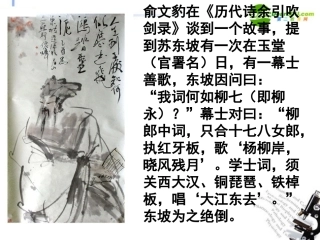 俞文豹在《历代诗余引吹
剑录》谈到一个故事，提
到苏东坡有一次在玉堂
（官署名）日，有一幕士
善歌，东坡因问曰：
“我词何如柳七（即柳
永）？”幕士对曰：“柳
郎中词，只合十七八女郎，
执红牙板，歌‘杨柳岸，
晓风残月’。学士词，须
关西大汉、铜琵琶、铁棹
板，唱‘大江东去’。”
东坡为之绝倒。